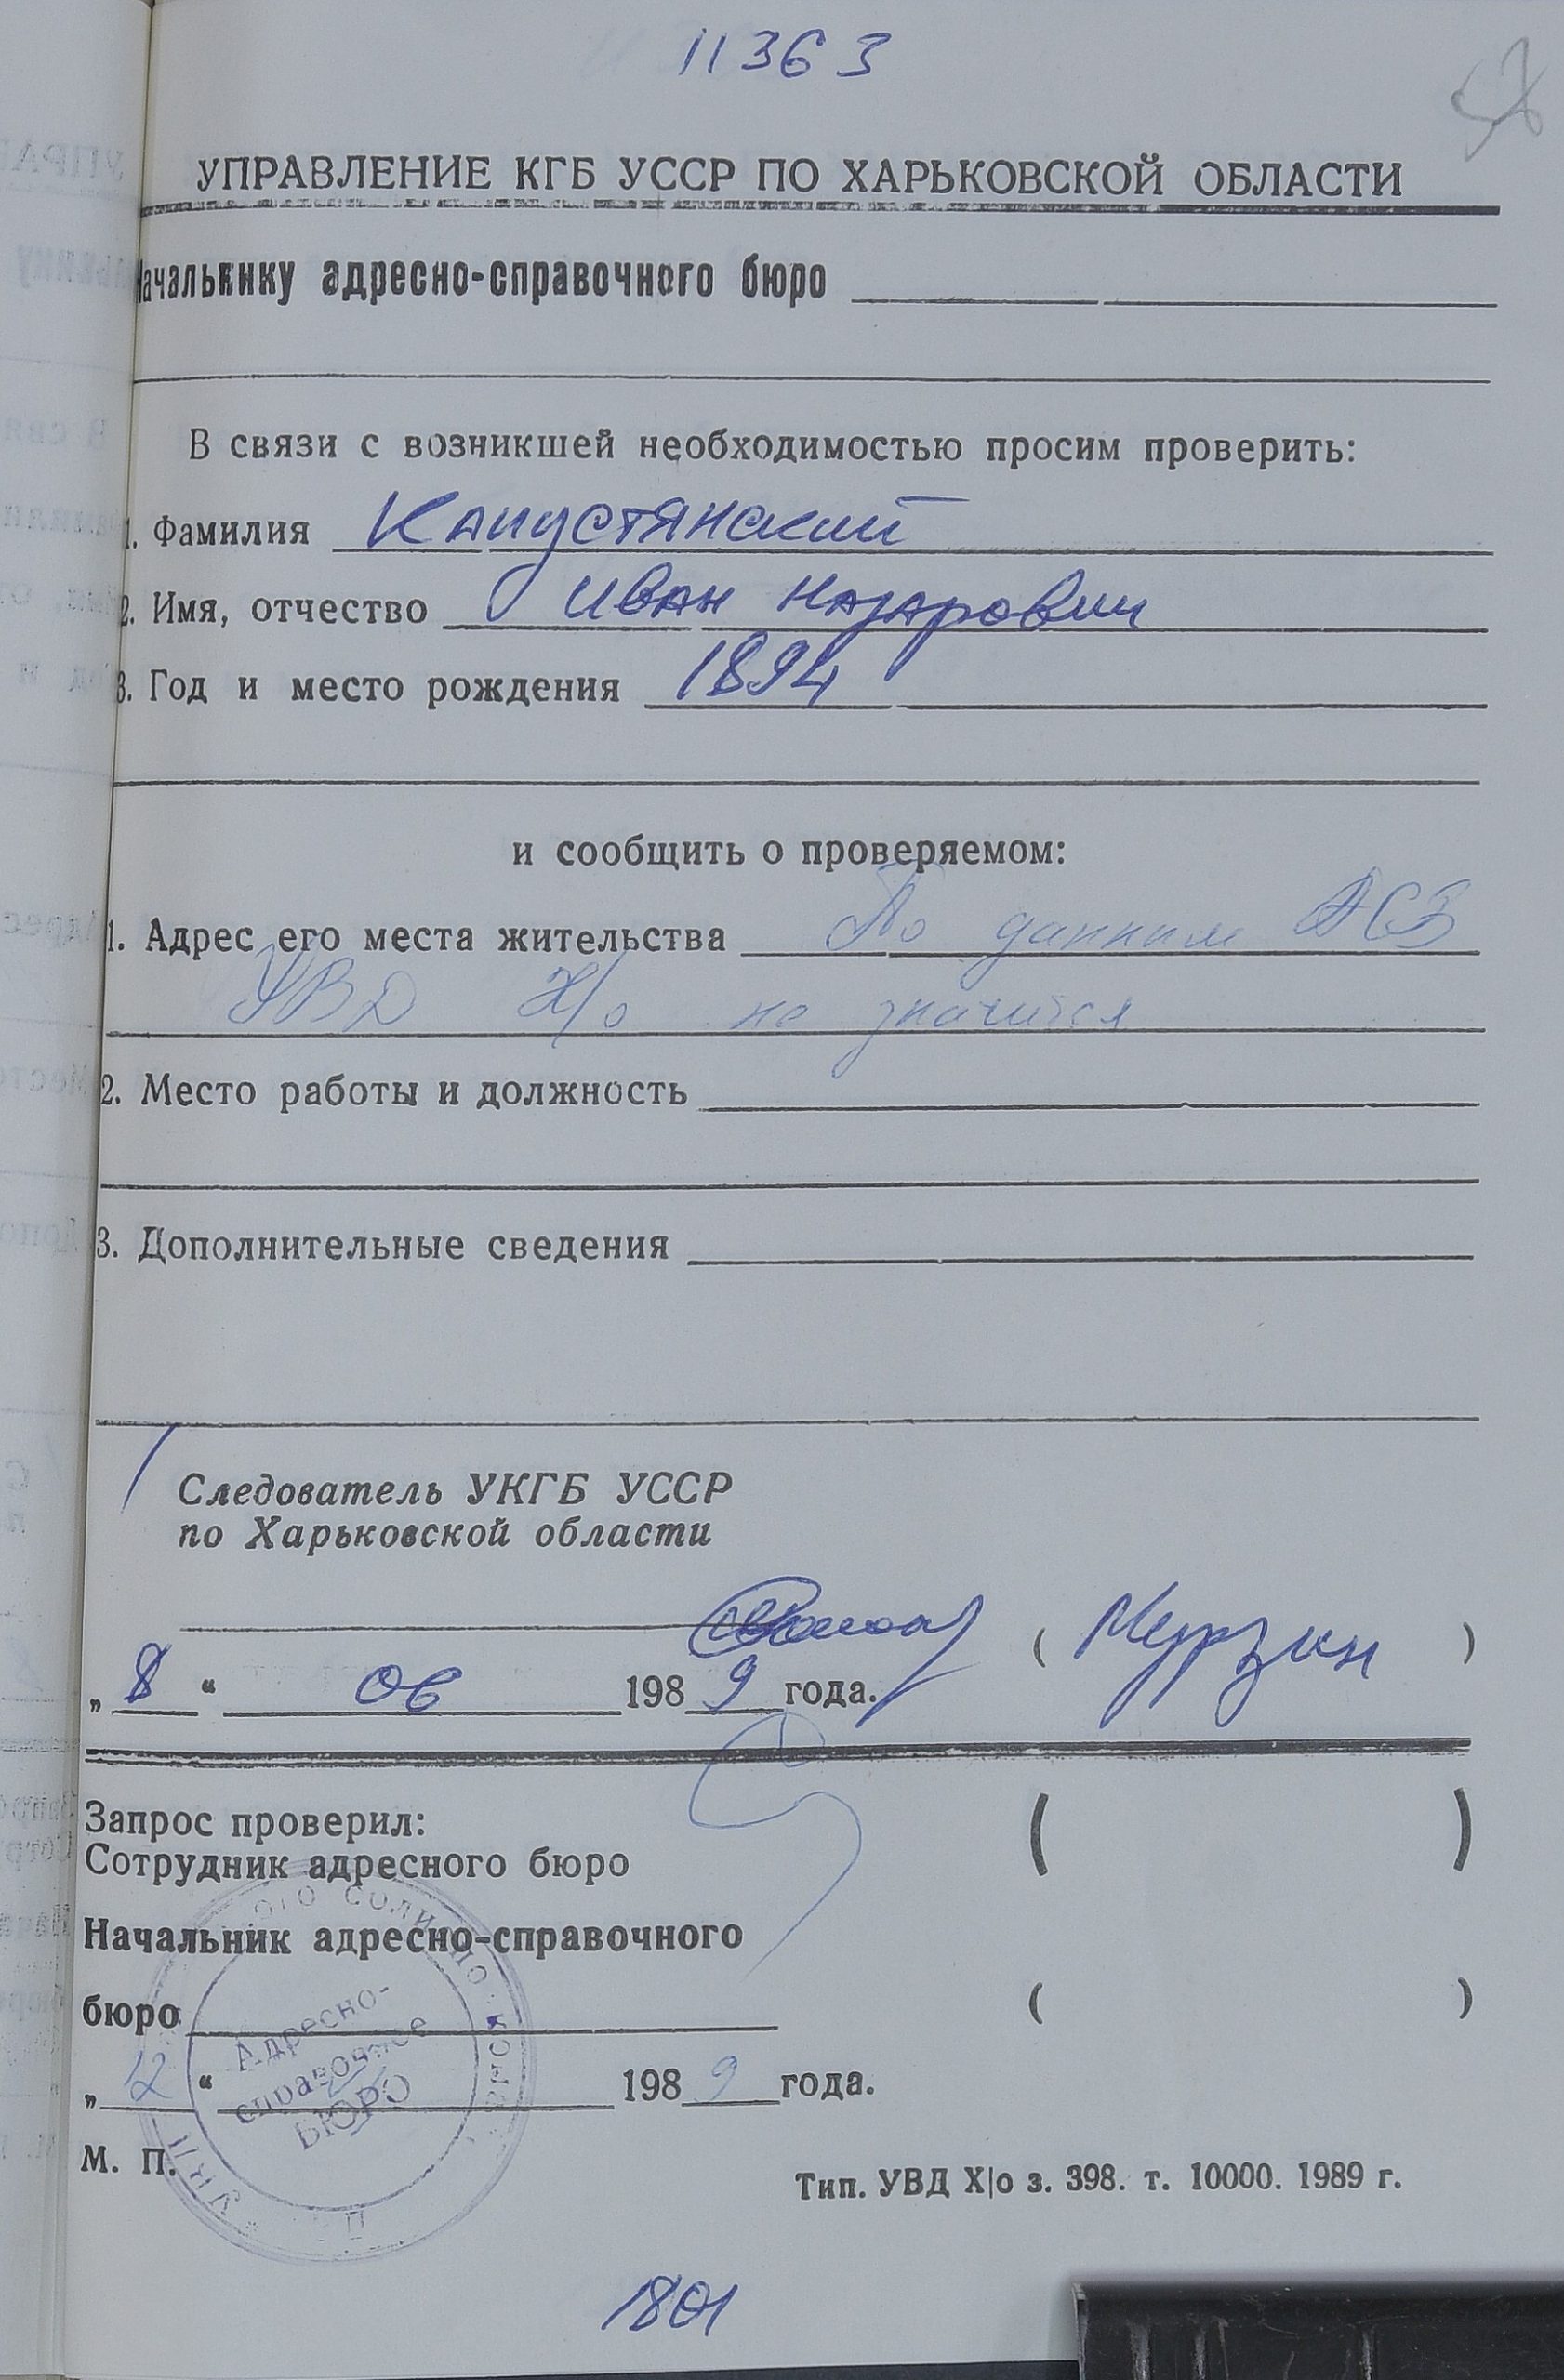 11363
УПРАВЛЕНИЕ КГБ УССР ПО ХАРЬКОВСКОЙ ОБЛАСТИ
Начальнику адресно-справочного бюро
В связи с возникшей необходимостью просим проверить:
1. Фамилия Капустянский
2. Имя, отчество Иван Назарович
3. Год и место рождения 1894
и сообщить о проверяемом:
1. Адрес его места жительства По данным АСБ
УВД Х/о не значится
2. Место работы и должность
3. Дополнительные сведения
Следователь УКГБ УССР
по Харьковской области
( Мурзин )
„ 8 “ 06 1989 года.
Запрос проверил:
Сотрудник адресного бюро ( )
Начальник адресно-справочного
бюро ( )
„ 12 “ 1989 года.
Адресно-
справочное
БЮРО
М. П.
Тип. УВД Х|о з. 398. т. 10000. 1989 г.
1801